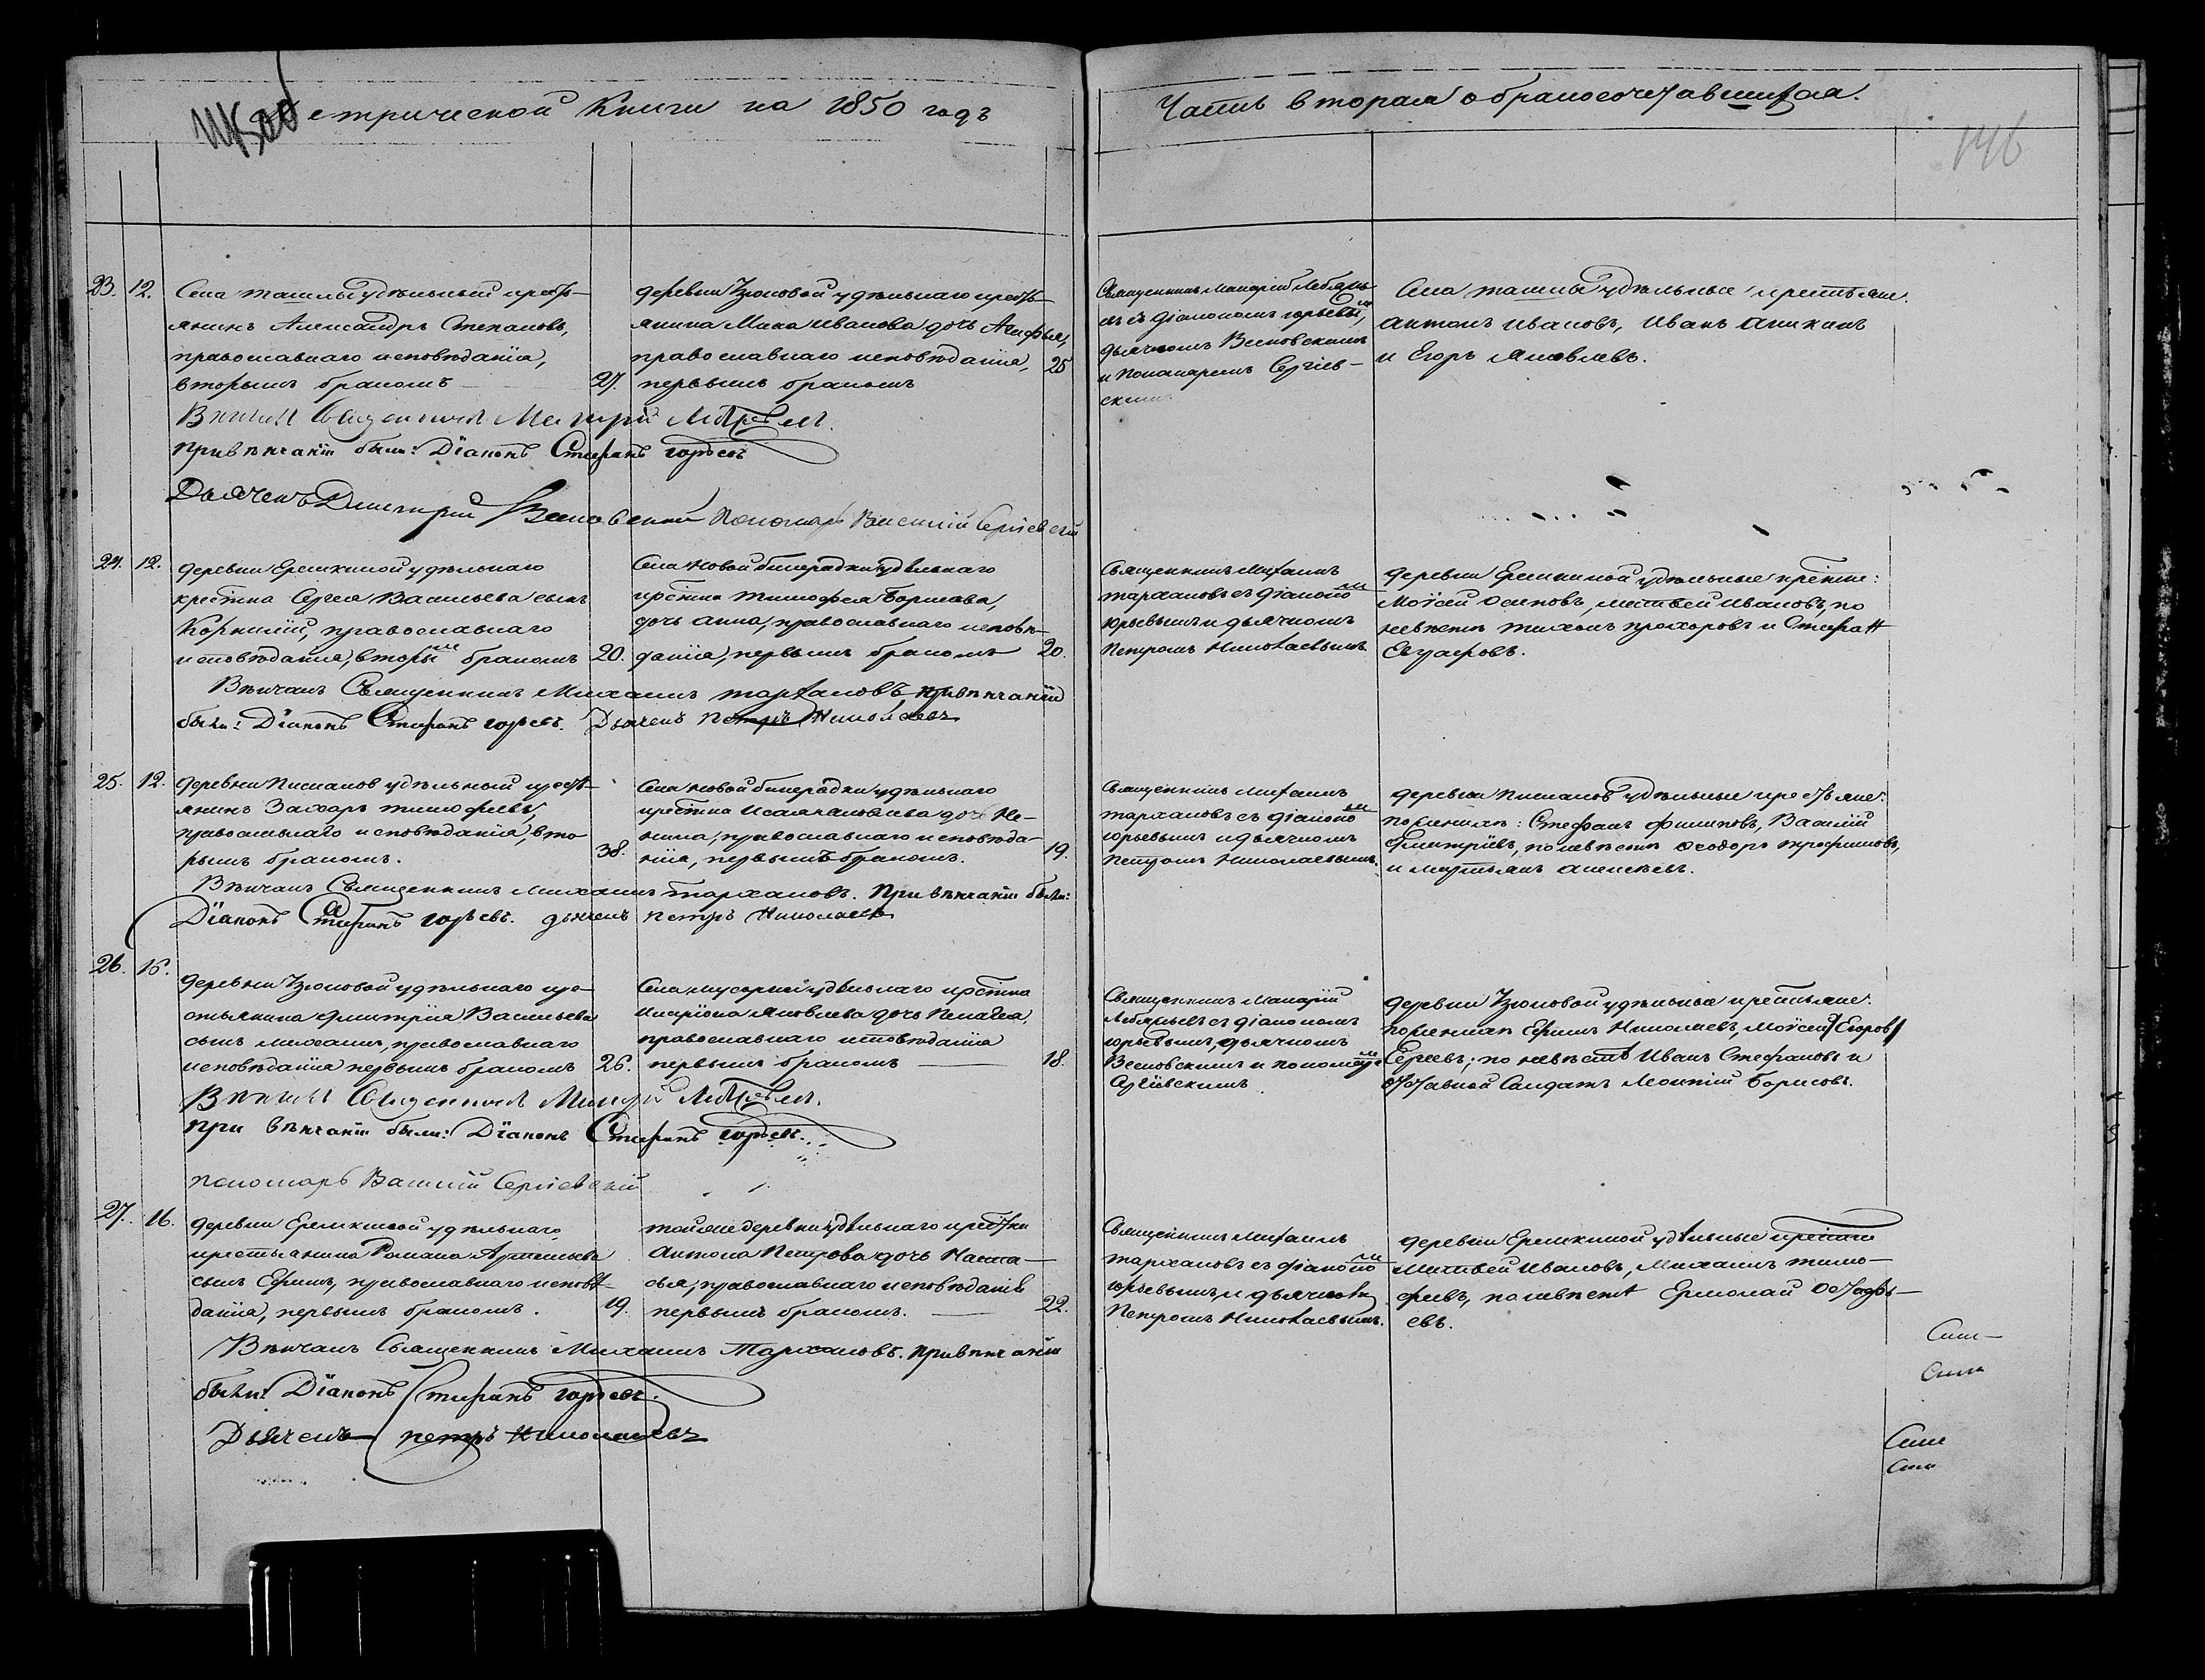 Метрической Книги на 1850 годъ
Часть вторая о бракосочетавшихся.
146
23. 12.
Села Ташлы удѣльный кресть-
янинъ Александръ Степановъ,
православнаго исповѣданія,
вторымъ бракомъ
27.
деревни Узюковой удѣльнаго кресть-
янина Мака Иванова дочь Агафья,
православнаго исповѣданія,
первымъ бракомъ
25
Священникъ Макарій Лебедь-
дьячкомъ Весновскимъ
и Пономаремъ Сергіев-
скимъ
Села Ташлы удѣльные крестьяне.
Антонъ Ивановъ, Иванъ Аникинъ
и Егоръ Яковлевъ.
Вѣнчалъ Священникъ Макарій
при вѣнчаніи были: Діаконъ Стефанъ Юрьевъ
Дьячекъ Димитрій Весновскій Пономарь Василій Сергіевскій
24. 12.
деревни Еремкиной удѣльнаго
крестина Сергея Васильева сынъ
Корнилій, православнаго
исповѣданія, вторымъ бракомъ
20.
Села Новой бинерадки удѣльнаго
крстина Тимофея Борисова,
дочь Анна, православнаго исповѣ-
данія, первымъ бракомъ
20.
Священникъ Михаилъ
Тархановъ съ діакономъ
Юрьевымъ и дьячкомъ
Петромъ Николаевымъ
деревни Еремкиной удѣльные крестне:
Моѵсей Осиповъ, Матвей Ивановъ, по
невѣстѣ Тихонъ Прохоровъ и Стефанъ
Вѣнчалъ Священникъ Михаилъ Тархановъ при вѣнчаніи
были: Діаконъ Стефанъ Юрьевъ. Дьячекъ Петръ Николаевъ
25. 12.
деревни Писмаков удѣльный крест-
янинъ Захаръ Тимофеевъ,
православнаго исповѣданія, вто-
рымъ бракомъ.
38.
Села Новой бинерадки удѣльнаго
крестина Исаія дочь Не-
нила, православнаго исповѣда-
нія, первымъ бракомъ.
19.
Священникъ Михаилъ
Тархановъ съ діакономъ
Юрьевымъ и дьячкомъ
Петромъ Николаевымъ.
деревни Писмаков удѣльные крестьяне:
по женихѣ: Стефанъ Филиповъ, Василій
Дмитріевъ, по невѣстѣ Ѳеодоръ Трофимовъ,
и Мартьянъ Алексѣевъ.
Вѣнчалъ Священникъ Михаилъ Тархановъ. При вѣнчаніи были:
Діаконъ Стефанъ Юрьевъ. дьячекъ Петръ Николаевъ
26. 16.
деревни Узюковой удѣльнаго кре-
стьянина Дмитрія Васильева
сынъ Михаилъ, православнаго
исповѣданія первымъ бракомъ
26.
Села Мусорки удѣльнаго крстина
Иларіона Яковлева дочь Пелагея,
православнаго исповѣданія
первымъ бракомъ
18.
Священникъ Макарій
Лебедевъ съ діакономъ
Юрьевымъ, дьячкомъ
Весновскимъ и пономаремъ
Сергіевскимъ
деревни Узюковой удѣльные крестьяне:
по женихѣ Ефимъ Николаевъ, Моѵсей /Егоровъ/
Сергеевъ; по невѣстѣ Иванъ Стефановъ и
отставной Салдатъ Леонтій Борисовъ.
Вѣнчалъ Священникъ Макарій
при вѣнчаніи были: Діаконъ Стефанъ Юрьевъ.
пономарь Василій Сергіевскій
27. 16.
деревни Еремкиной удѣльнаго
крестьянина Романа Артемьева
сынъ Ефимъ, православнаго исповѣ-
данія, первымъ бракомъ.
19.
тойже деревни удѣльнаго крестьянина
Антона Петрова дочь Наста-
сья, православнаго исповѣданія
первымъ бракомъ.
22.
Священникъ Михаилъ
Тархановъ съ діакономъ
Юрьевымъ и дьячкомъ
Петромъ Николаевымъ.
деревни Еремкиной удѣльные крестьяне
Матвей Ивановъ, Михаилъ Тимо-
феевъ, по невѣстѣ Ермолай
евъ.
Вѣнчалъ Священникъ Михаилъ Тархановъ. при вѣнчаніи
были: Діаконъ Стефанъ Юрьевъ.
Дьячекъ Петръ Николаевъ